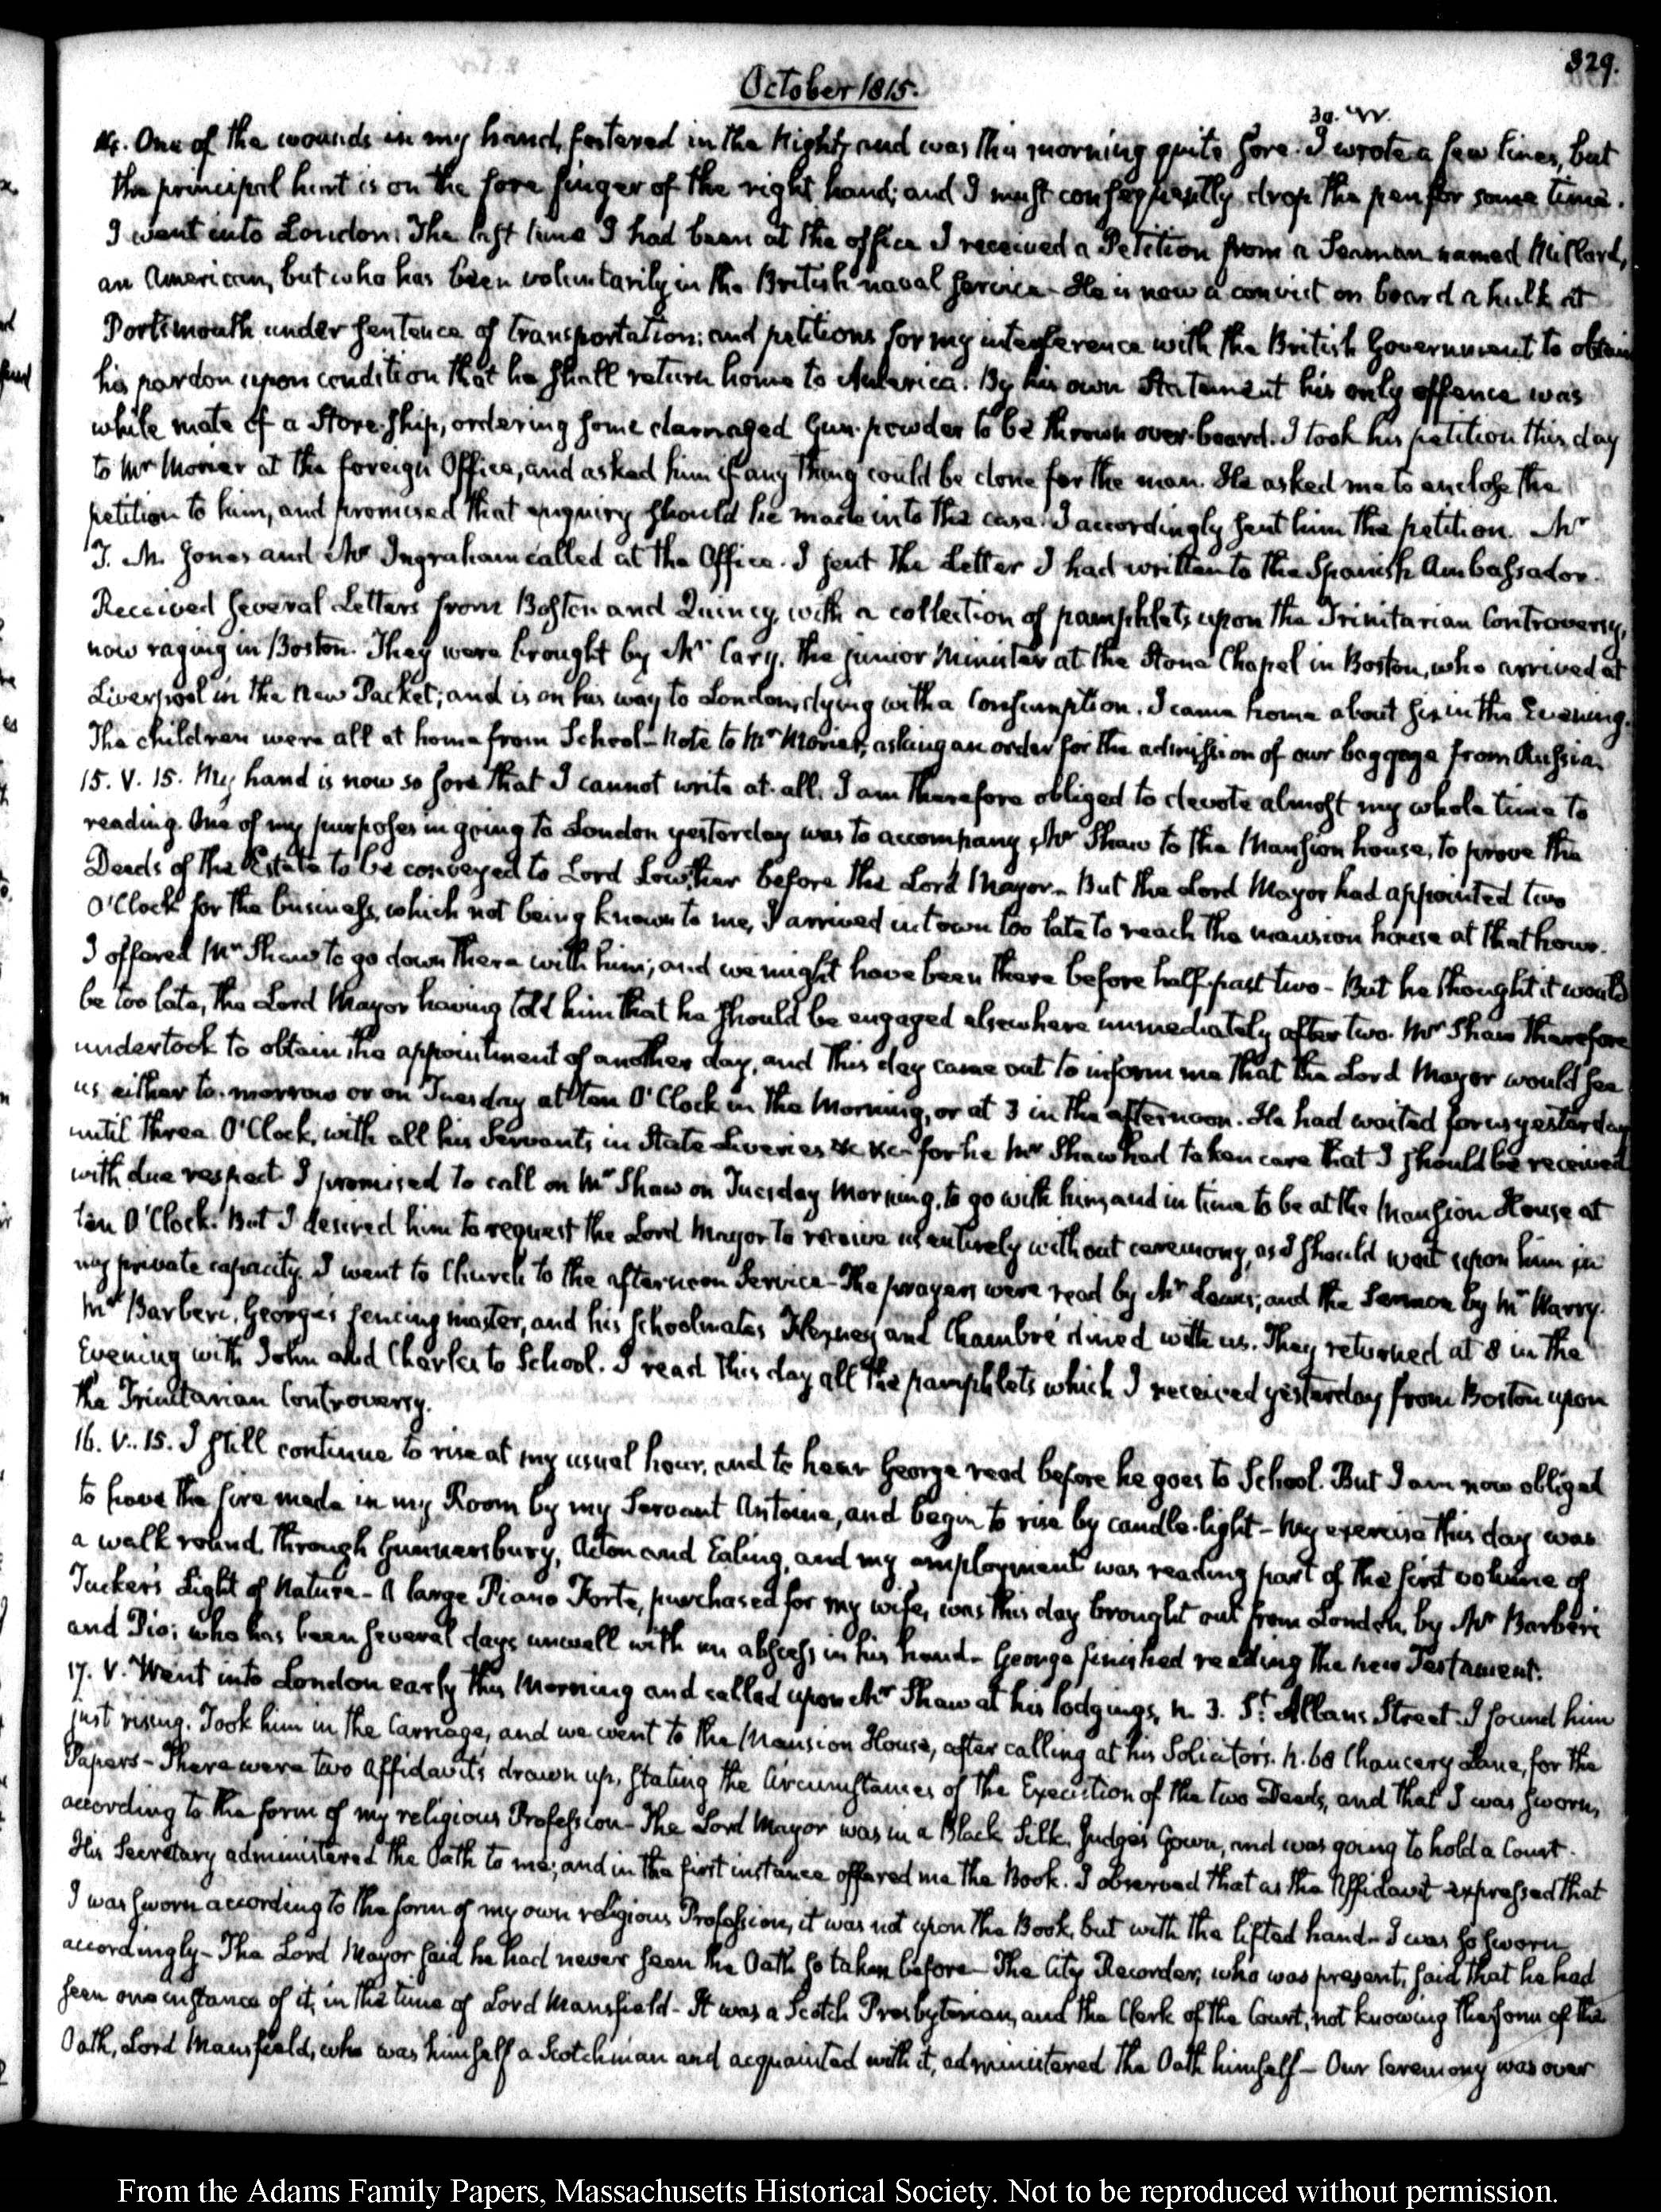 329.
October 1815.
14. One of the wounds in my hand, festered in the Night, and was this morning quite sore. I wrote a few lines, but
the principal hurt is on the fore finger of the right hand; and I must consequently drop the pen for some time.
I went into London. The last time I had been at the office I received a Petition from a Seaman named Millard,
an American, but who has been voluntarily in the British naval service. He is now a convict on board a hulk at
Portsmouth under sentence of transportation; and petitions for my interference with the British Government to obtain
his pardon upon condition that he shall return home to America. By his own Statement his only offence was
while mate of a Store-ship, ordering some damaged Gun-powder to be thrown over-board. I took his petition this day
to Mr Morier at the foreign Office, and asked him if any thing could be done for the man. He asked me to enclose the
petition to him, and promised that enquiry should be made into the case. I accordingly sent him the petition. Mr
T. M. Jones and Mr Ingraham called at the Office. I sent the Letter I had written to the Spanish Ambassador.
Received several Letters from Boston and Quincy, with a collection of pamphlets upon the Trinitarian Controversy,
now raging in Boston. They were brought by Mr Cary, the junior Minister at the Stone Chapel in Boston, who arrived at
Liverpool in the New Packet; and is on his way to London, dying with a Consumption. I came home about six in the Evening.
The children were all at home from School - Note to Mr Morier, asking an order for the admission of our baggage from Russia.
15. V. 15. My hand is now so sore that I cannot write at all. I am therefore obliged to devote almost my whole time to
reading. One of my purposes in going to London yesterday was to accompany Mr Shaw to the Mansion house, to prove the
Deeds of the Estate to be conveyed to Lord Lowther before the Lord Mayor - But the Lord Mayor had appointed two
O'Clock for the business, which not being known to me, I arrived in town too late to reach the mansion house at that hour.
I offered Mr Shaw to go down there with him; and we might have been there before half-past two - But he thought it would
be too late, the Lord Mayor having told him that he should be engaged elsewhere immediately after two. Mr Shaw therefore
undertook to obtain the appointment of another day, and this day came out to inform me that the Lord Mayor would see
us either to-morrow or on Tuesday at ten O'Clock in the Morning, or at 3 in the afternoon. He had waited for us yesterday
until three O'Clock, with all his Servants in State Liveries &c &c - for he Mr Shaw had taken care that I should be received
with due respect. I promised to call on Mr Shaw on Tuesday Morning, to go with him, and in time to be at the Mansion House at
ten O'Clock. But I desired him to request the Lord Mayor to receive us entirely without ceremony, as I should wait upon him in
my private capacity. I went to Church to the afternoon Service - The prayers were read by Mr Lewis; and the Sermon by Mr Harry.
Mr Barberi, George's fencing master, and his schoolmates and Chambré dined with us. They returned at 8 in the
Evening with John and Charles to School. I read this day all the pamphlets which I received yesterday from Boston upon
the Trinitarian Controversy.
16. V. 15. I still continue to rise at my usual hour, and to hear George read before he goes to School. But I am now obliged
to have the fire made in my Room by my Servant Antoine, and begin to rise by candle-light - My exercise this day was
a walk round, through Gunnersbury, Acton and Ealing, and my employment was reading part of the first volume of
Tucker's Light of Nature - A large Piano Forte, purchased for my wife, was this day brought out from London, by Mr Barberi
and Pio; who has been several days unwell with an abscess in his hand - George finished reading the new Testament.
17. V. Went into London early this Morning and called upon Mr Shaw at his lodgings, N. 3. St. Albans Street. I found him
just rising. Took him in the Carriage, and we went to the Mansion House, after calling at his Solicitor's. N. 68 Chancery Lane, for the
Papers - There were two affidavits drawn up, stating the Circumstances of the Execution of the two Deeds, and that I was sworn,
according to the form of my religious Profession - The Lord Mayor was in a Black Silk, Judge's Gown, and was going to hold a Court.
His Secretary administered the Oath to me; and in the first instance offered me the Book. I observed that as the Affidavit expressed that
I was sworn according to the form of my own religious Profession, it was not upon the Book, but with the lifted hand - I was so sworn
accordingly - The Lord Mayor said he had never seen the Oath so taken before - The City Recorder, who was present, said that he had
seen one instance of it, in the time of Lord Mansfield - It was a Scotch Presbyterian, and the Clerk of the Court, not knowing the form of the
Oath, Lord Mansfield, who was himself a Scotchman and acquainted with it, administered the Oath himself - Our Ceremony was over
From the Adams Family Papers, Massachusetts Historical Society. Not to be reproduced without permission.